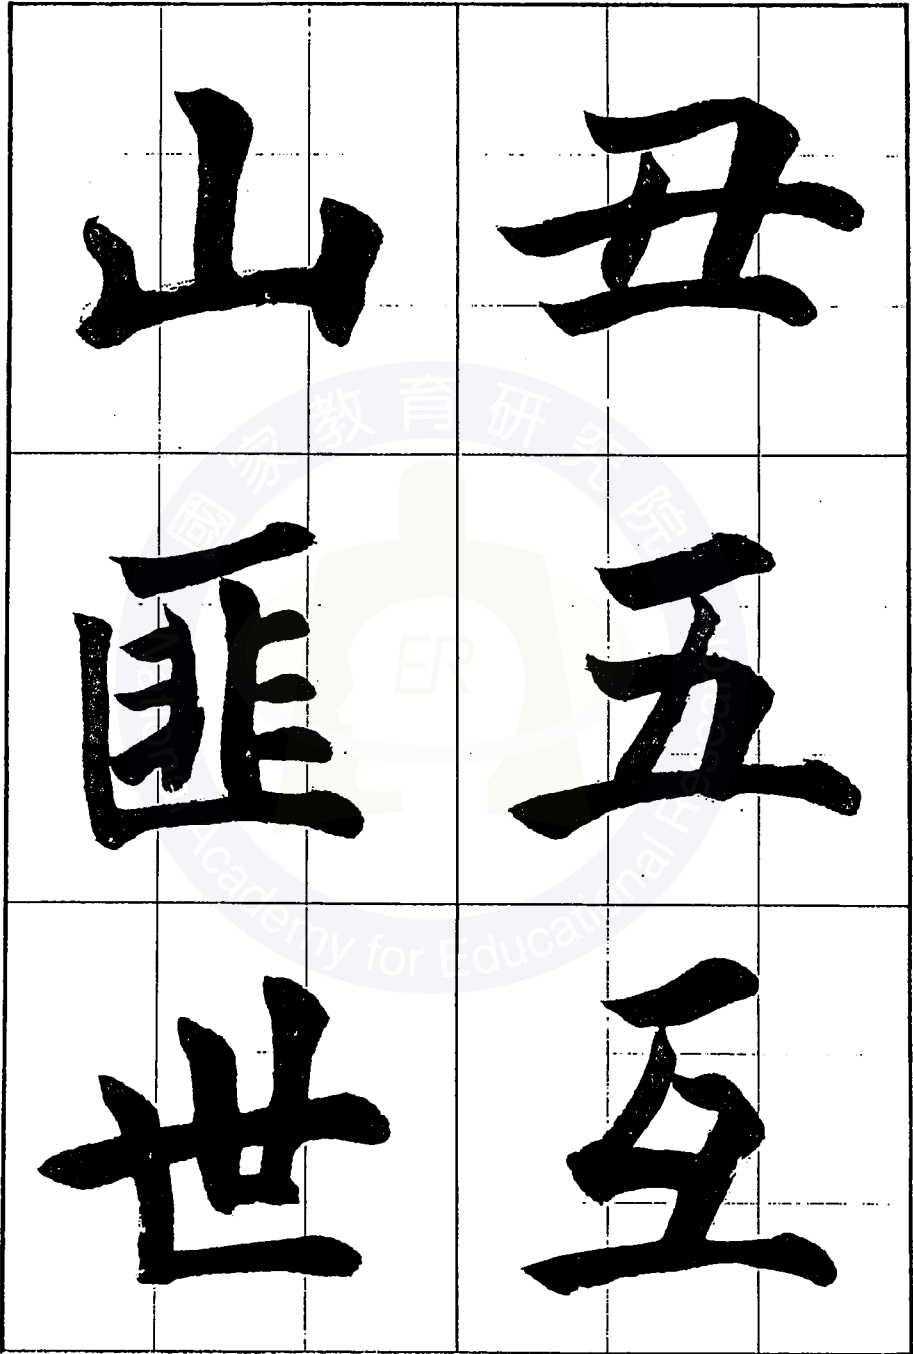 丑
五
互
山
匪
世
國家教育研究院
National Academy for Educational Research
ER